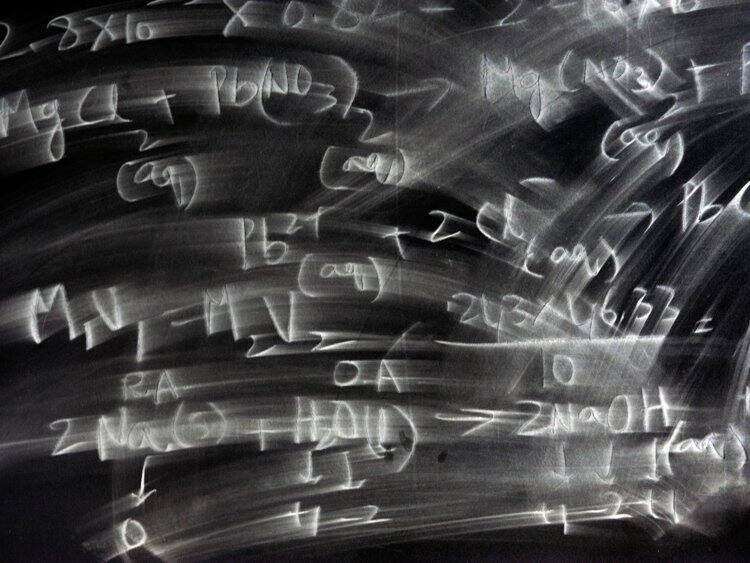 2.8×10 × 0.8
MgCl₂ + Pb(NO₃)₂ → Mg(NO₃)₂ +
(aq) (aq) (aq)
Pb²⁺ + 2Cl⁻ → Pb
(aq) (aq)
M₁V₁ = M₂V₂
RA OA 10
2Na(s) + H₂O(l) → 2NaOH
(aq)
0 +1 -2 +1 -2 +1